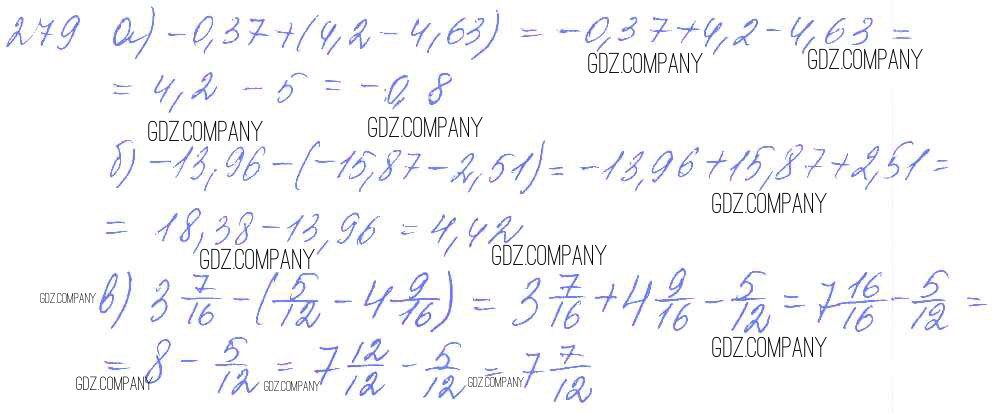 279 а) -0,37+(4,2-4,63) = -0,37+4,2-4,63 =
GDZ.COMPANY GDZ.COMPANY
= 4,2 - 5 = -0,8
GDZ.COMPANY GDZ.COMPANY
б) -13,96-(-15,87-2,51)=-13,96+15,87+2,51=
GDZ.COMPANY
= 18,38-13,96 = 4,42
GDZ.COMPANY GDZ.COMPANY
GDZ.COMPANY в) 3 7/16 - (5/12 - 4 9/16) = 3 7/16 + 4 9/16 - 5/12 = 7 16/16 - 5/12 =
GDZ.COMPANY
= 8 - 5/12 = 7 12/12 - 5/12 = 7 7/12
GDZ.COMPANY GDZ.COMPANY GDZ.COMPANY